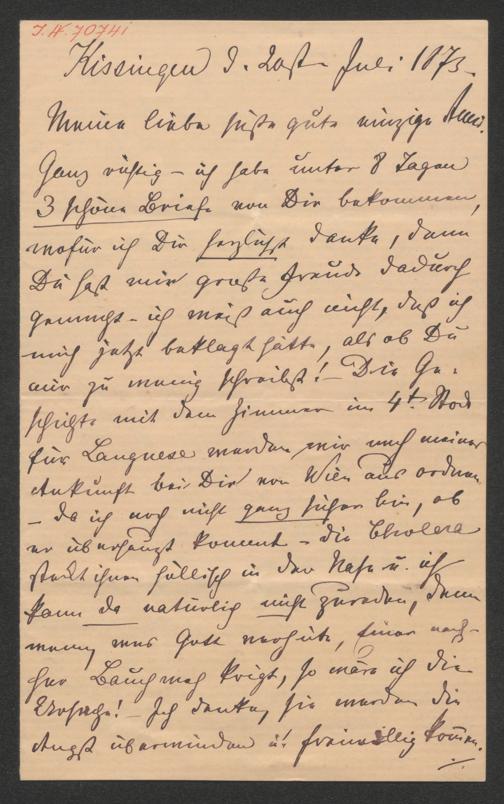 I.N. 70741
Kissingen d. 20st Juli 1873.
Meine liebe süße gute einzige
Ganz richtig – ich habe unter 8 Tagen
3 schöne Briefe von Dir bekommen,
wofür ich Dir herzlichst danke, denn
Du hast mir große Freude dadurch
gemacht – ich weiß auch nicht, daß ich
mich jetzt beklagt hätte, als ob Du
mir zu wenig schreibst! – Die Ge-
schichte mit dem Zimmer im 4t Stock
für Langnese werden wir nach meiner
Ankunft bei Dir von Wien aus ordnen
– da ich noch nicht ganz sicher bin, ob
er überhaupt kommt – die Cholera
steckt ihnen höllisch in der Nase u. ich
kann da natürlich nicht zureden, denn
wenn, was Gott verhüte, einer nach-
her Bauchweh krigt, so wäre ich die
Ursache! – Ich denke, sie werden die
Angst überwinden u. freiwillig kommen.